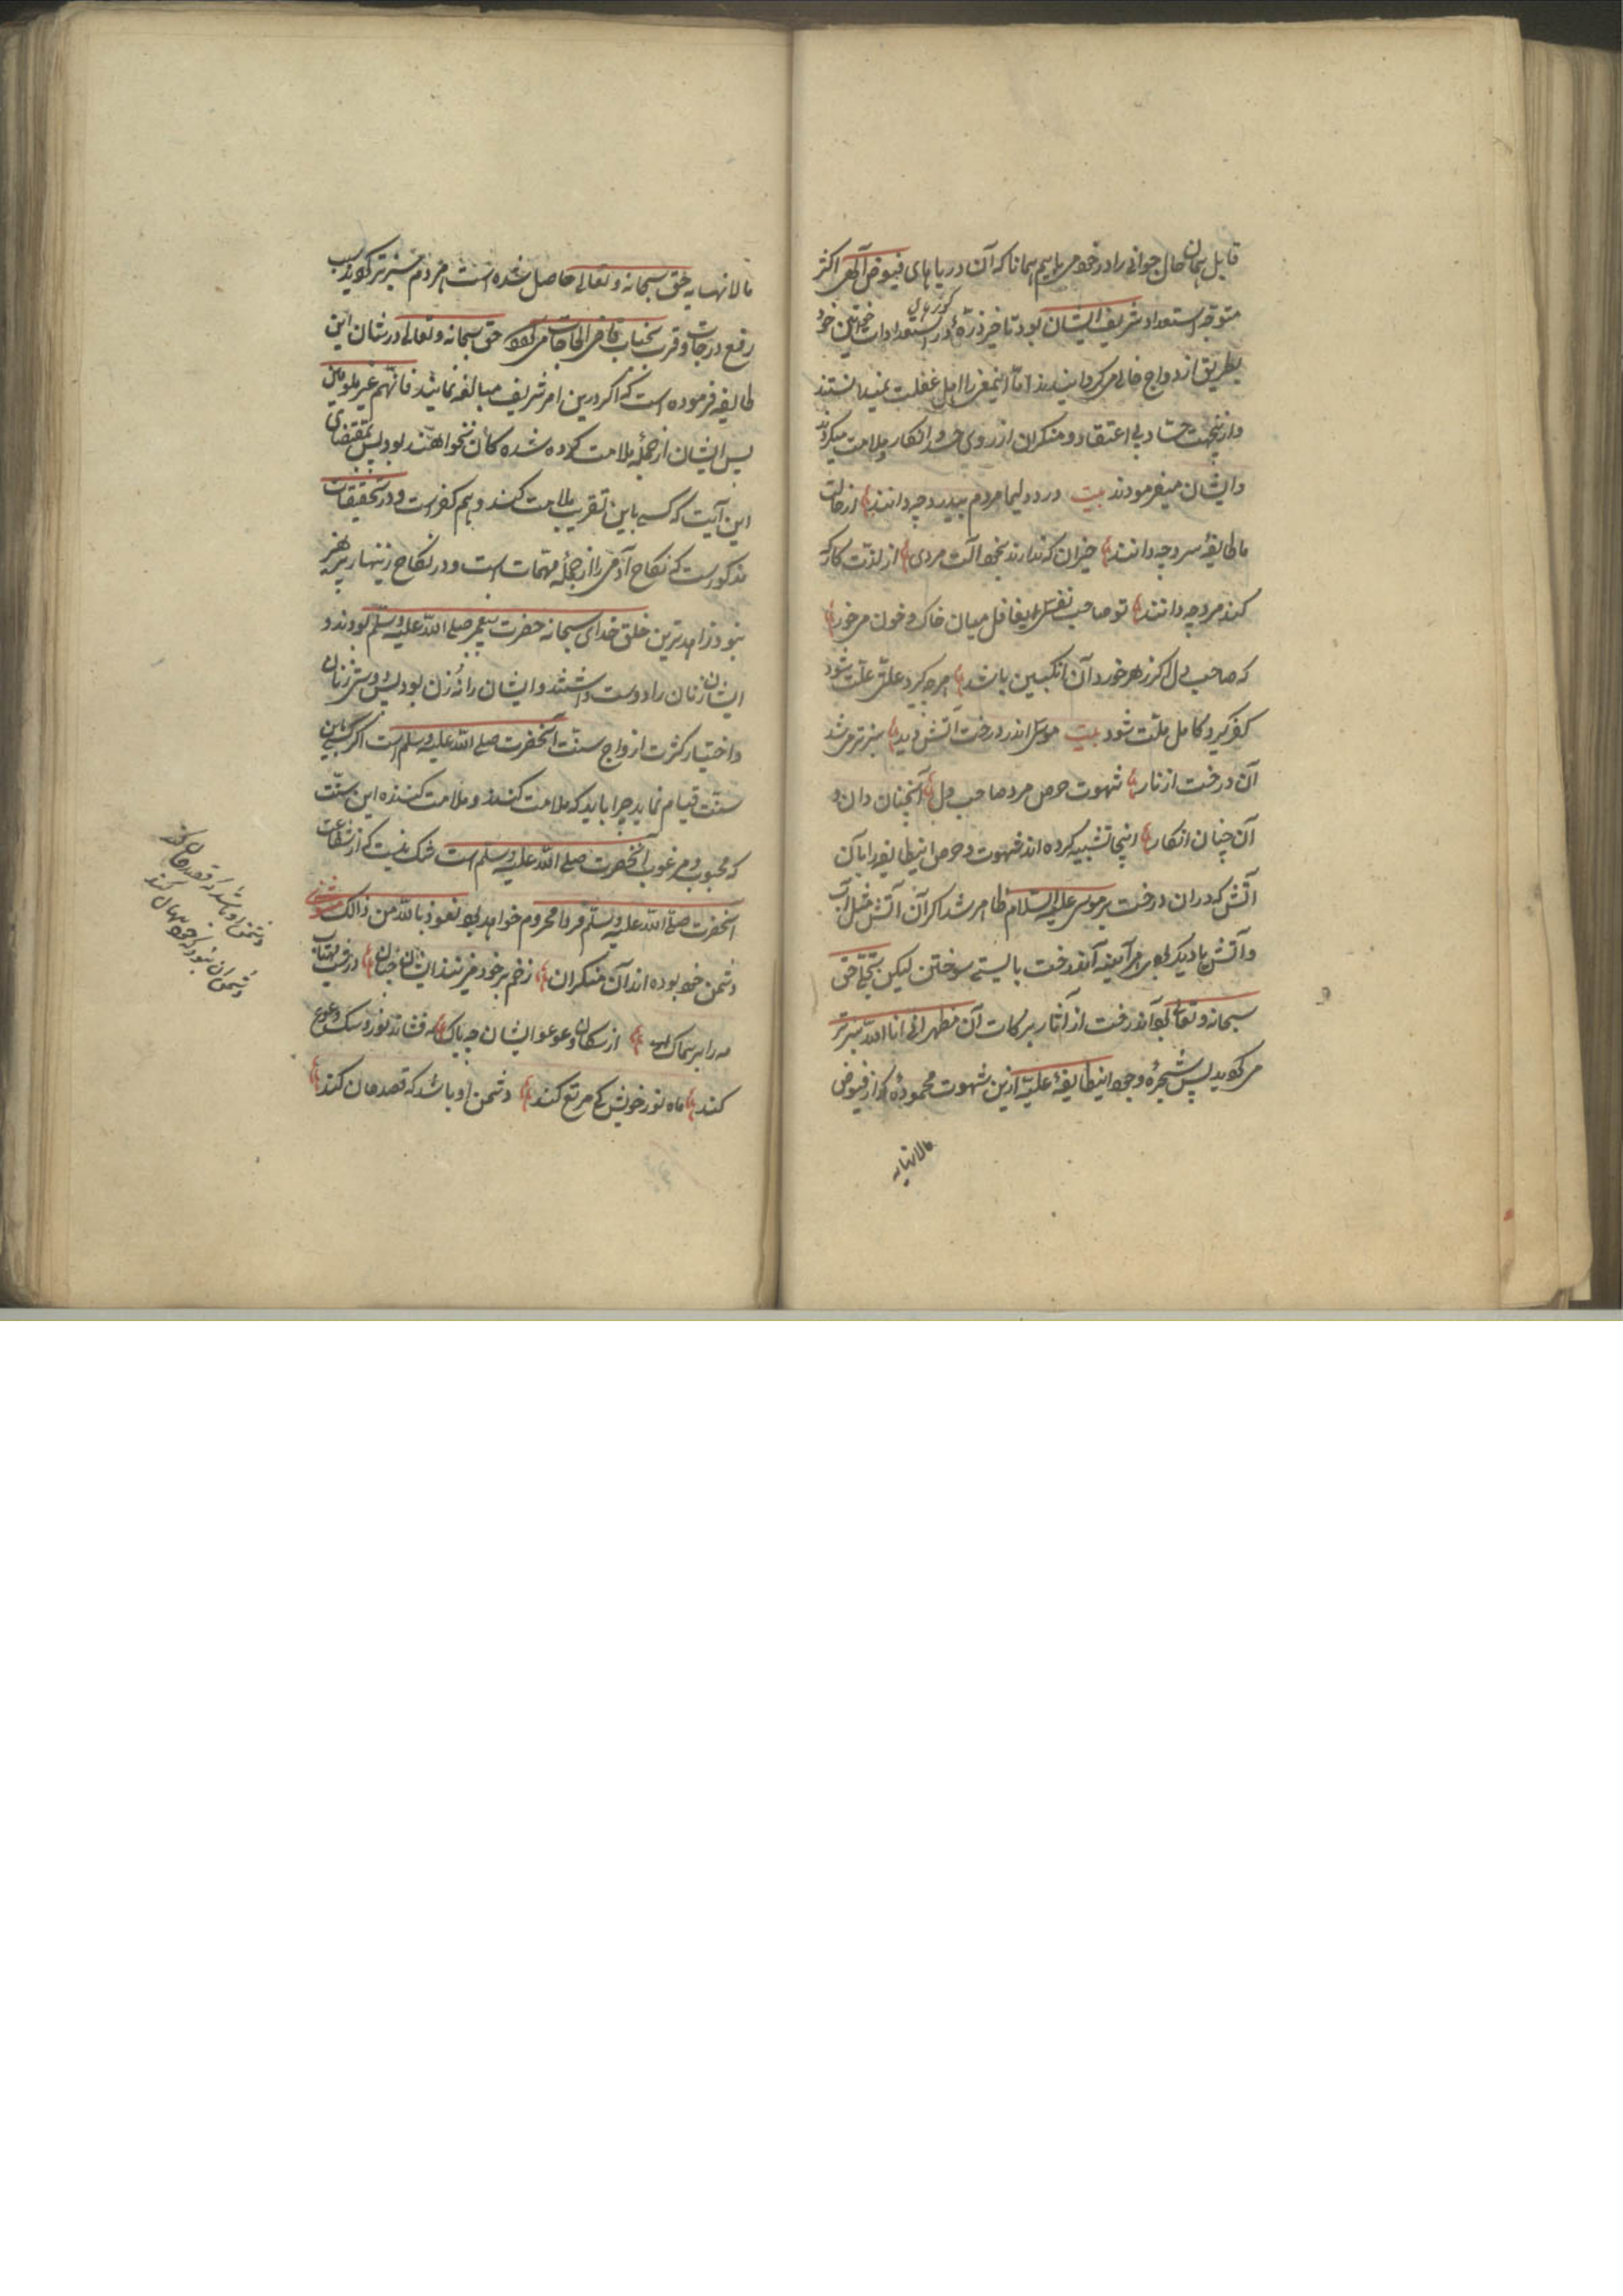 قابل همان حال جوانی را در خود می یابیم همانا که آن دریاهای فیوض الهی اکثر
متوجه استعداد شریف ایشان بود تا خیر ذره در استعدادات خواتین خود
بطریق ازدواج خالی می کردانیدند اما اینمعنی را اهل غفلت نمیدانستند
و ازینجهت حساد بی اعتقاد و منکران از روی حسد و انکار و ملامت میکردند
و ایشان میفرمودند بیت درد دلیما مردم بیدرد چه دانند از حالت
ما طایفه سرد چه دانند حیزان که ندارند بخود آلت مردی از لذت کاری که
کند مرد چه دانند تو صاحب نفسی ایغافل میان خاک و خون میخور
که صاحب دل اکر زهر خورد آن انکبین باشد هرچه کیرد علتی علت شود
کفر کیرد کامل ملت شود بیت موسی اندر درخت آتش دید سبزتر می شد
آن درخت از نار شهوت حرص مرد صاحب دل آنچنان دان و
آن چنان انکار اینجا تشبیه کرده اند شهوت و حرص اینطایفه را بآن
آتش که دران درخت بر موسی علیه السلام ظاهر شد اکر آن آتش مثل آن
و آتشهاء دیکر بودی هر آینه آندرخت بایستی سوختن لیکن بتجلی حق
سبحانه و تعالی بود آندرخت از آثار برکات آن مظهر انی انا الله سبزتر
می کردید پس شجره وجود اینطایفه علیه ازین شهوت محموده که از فیوض
مالانهایه
مالانهایه حق سبحانه و تعالی حاصل شده است هر دم سبزتر کردید سبب
رفع درجات و قرب بجناب قاضی الحاجات می کردد حق سبحانه و تعالی در شان این
طایفه فرموده است که اکر درین امر شریف مبالغه نمایند فانهم غیر ملومین
پس ایشان از جمله ملامت کرده شده کان نخواهند بود پس بمقتضای
این آیت که کسی باین تقریب ملامت کند و بهم کفر است و در تحقیقات
مذکور است که نکاح آدمی را از جمله مهمات است و در نکاح زینهار پرهیز
نبود زاهدترین خلق خدای سبحانه حضرت پیغمبر صلی الله علیه وسلم بودند و
ایشان زنان را دوست داشتند و ایشان را نه زن بود پس دوستی زنان
و اختیار کثرت ازواج سنت آنحضرت صلی الله علیه وسلم است اکر کسی باین
سنت قیام نماید چرا باید که ملامت کنند و ملامت کننده این سنت
که محبوب و مرغوب آنحضرت صلی الله علیه وسلم است شک نیست که از شفاعت
آنحضرت صلی الله علیه وسلم فردا محروم خواهد بود نعوذ بالله من ذالک مثنوی
دشمن خود بوده اند آن منکران زخم بر خود میزنند ایشان چنان در شب مهتاب
مه را بر سماک از سکان و عوعو ایشان چه باک مه فشاند نور و سک وعوع
کند ماه نور خویش کی مرتع کند دشمن او باشد که قصد جان کند
دشمن او باشد که قصد جان کند
دشمن آن نبود که خود جان کند